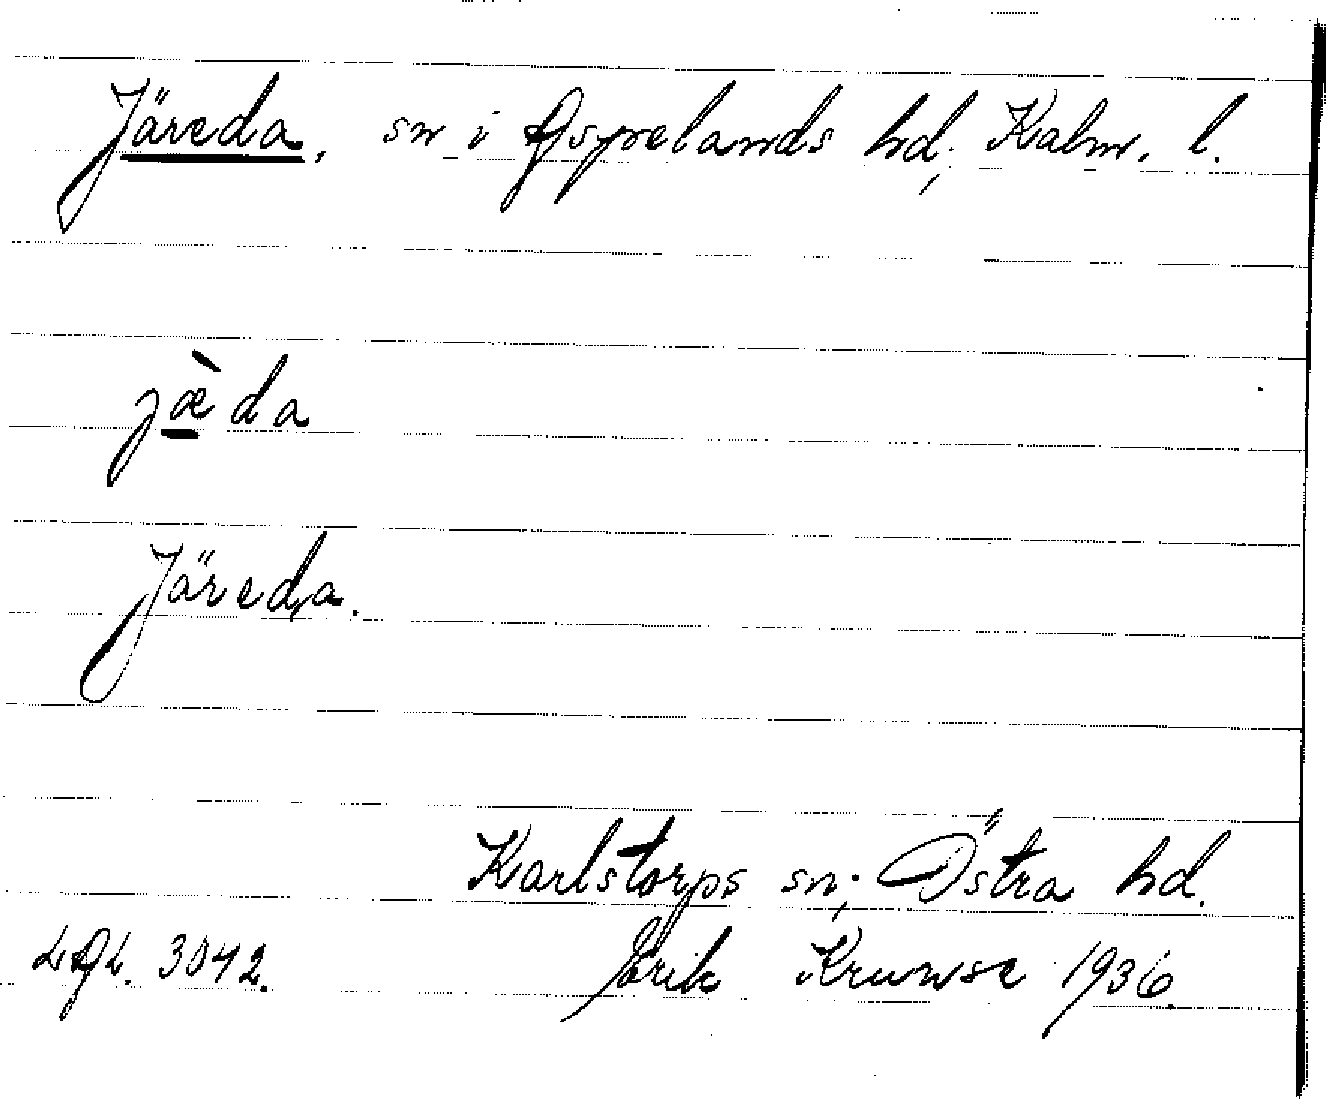 Järeda, sn i Aspelands hd; Kalm. l.
jæ̠̀da
Järeda.
Karlstorps sn; Östra hd.
LAL. 3042. Erik Kruuse 1936.